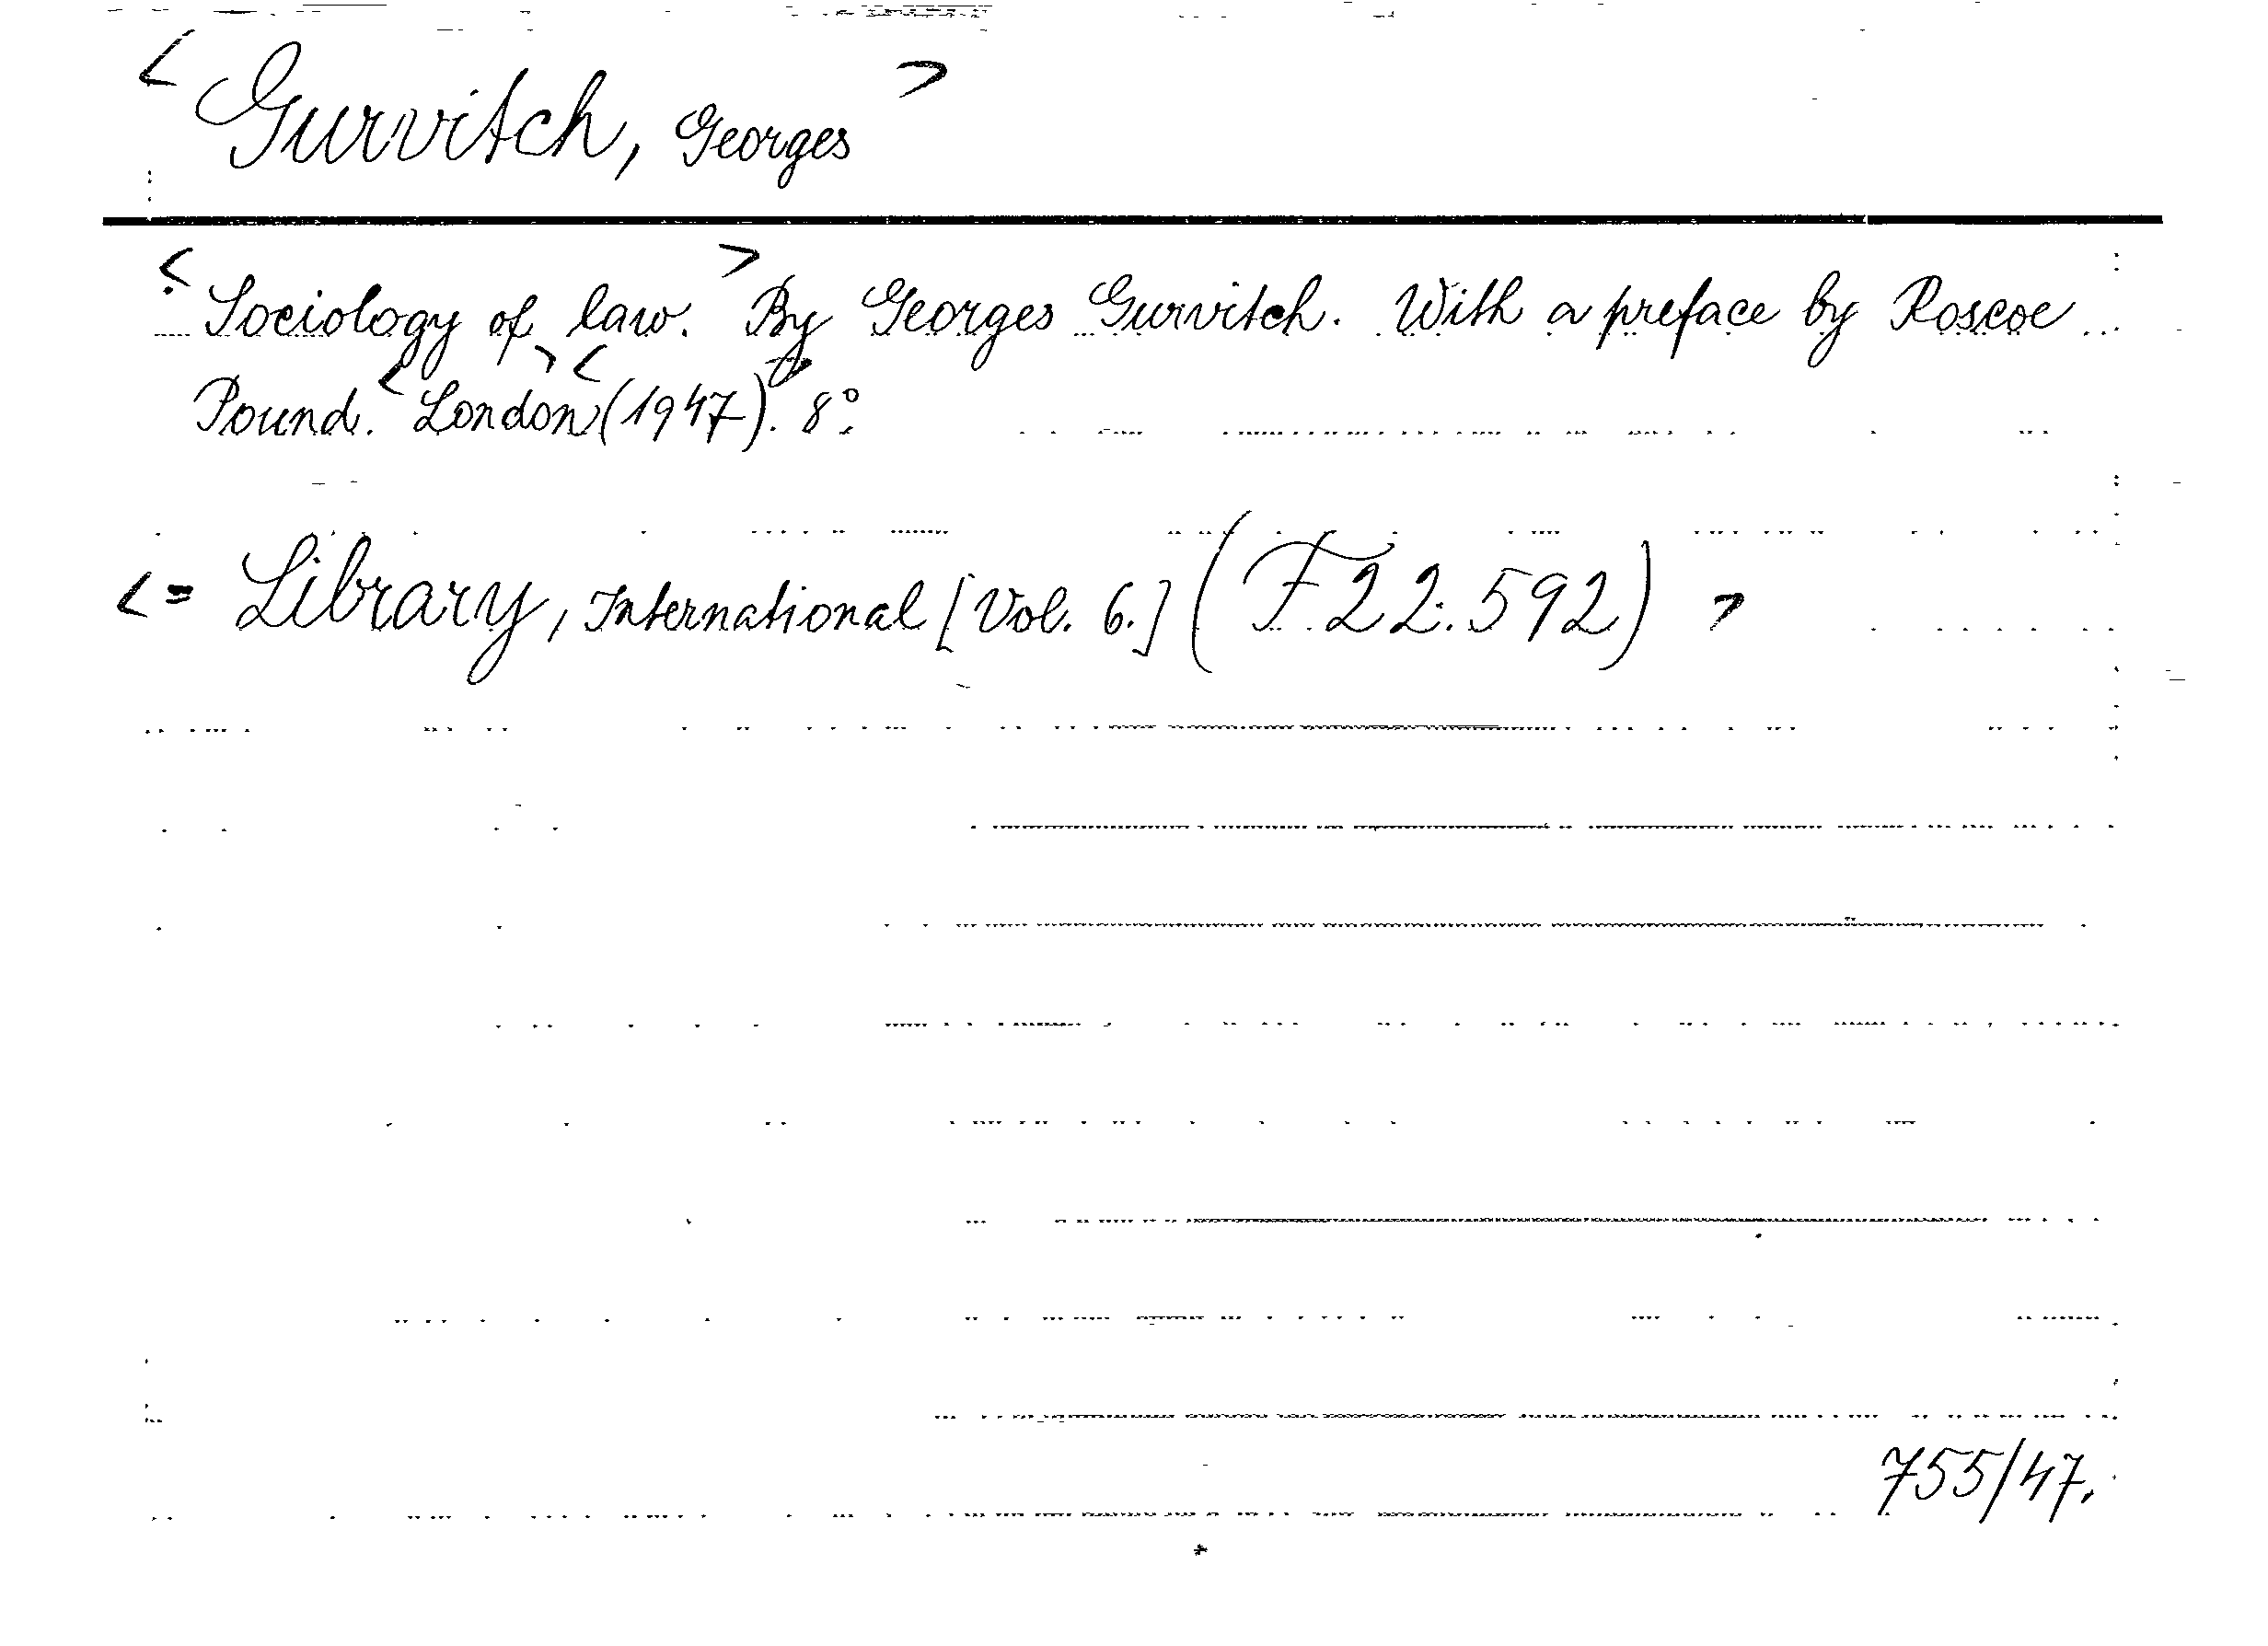 < Gurvitch, Georges >
< Sociology of law. > By Georges Gurvitch. With a preface by Roscoe
Pound. < London > < (1947). > 8°.
< = Library, International [Vol. 6.] (F 22.592) >
755/47.